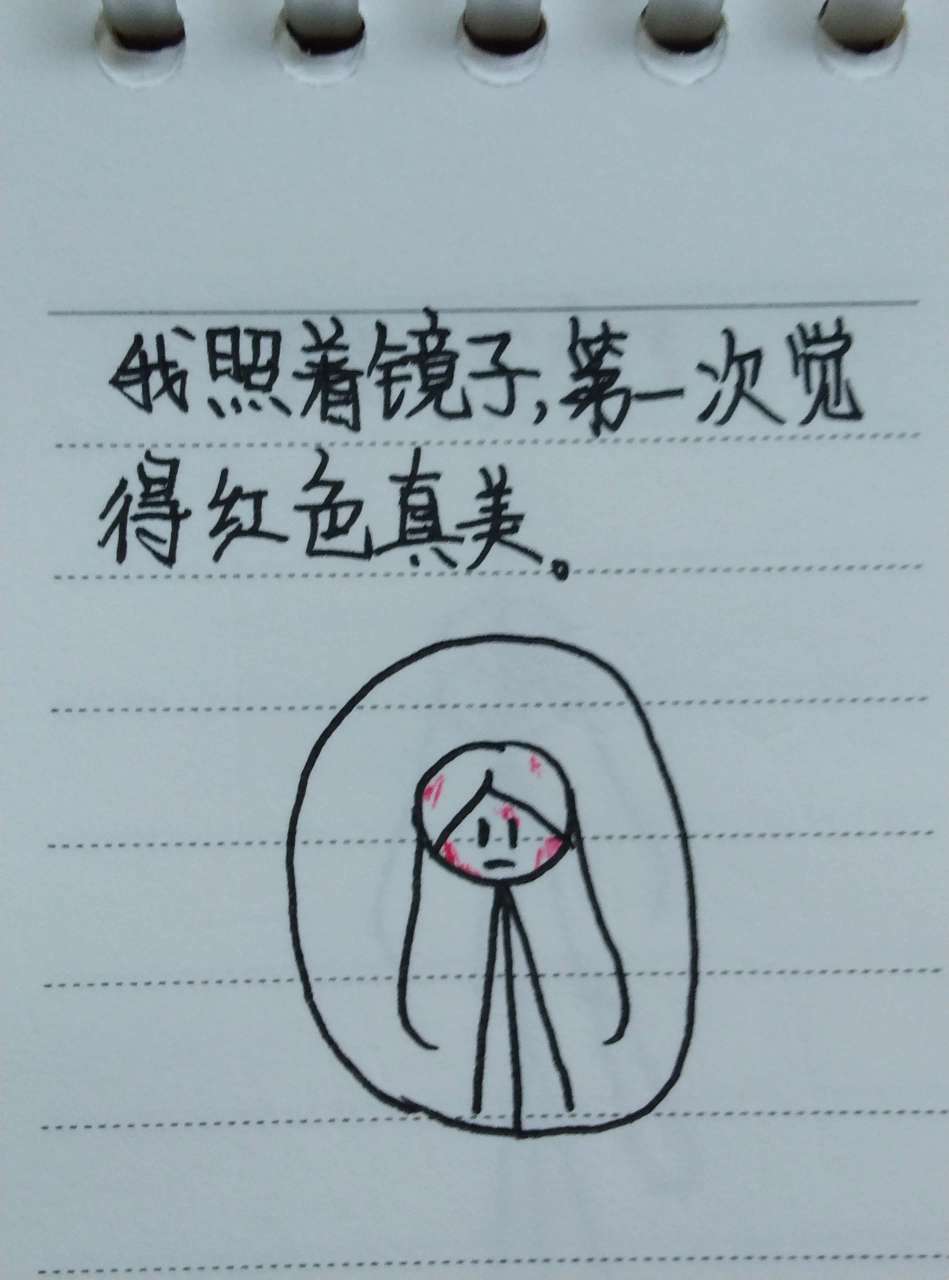 我照着镜子,第一次觉
得红色真美。